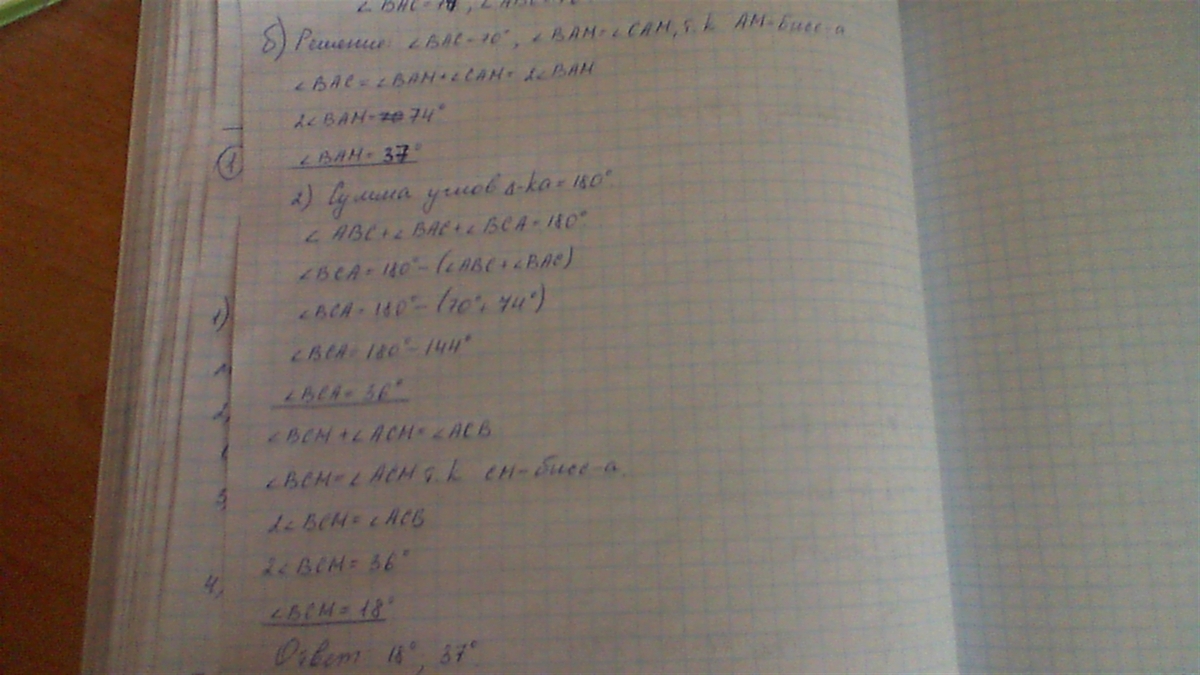 ∠BAC=74, ∠ABC=70
б) Решение: ∠BAC=70°, ∠BAM=∠CAM, т.к AM-бисс-а
∠BAC=∠BAM+∠CAM=2∠BAM
2∠BAM=74°
∠BAM=37°
1
2) Сумма углов Δ-ка=180°
∠ABC+∠BAC+∠BCA=180°
∠BCA=180°-(∠ABC+∠BAC)
∠BCA=180°-(70°+74°)
1)
∠BCA=180°-144°
∠BCA=36°
2,
∠BCM+∠ACM=∠ACB
∠BCM=∠ACM т.к CM-бисс-а
3
2∠BCM=∠ACB
2∠BCM=36°
4,
∠BCM=18°
Ответ 18°, 37°